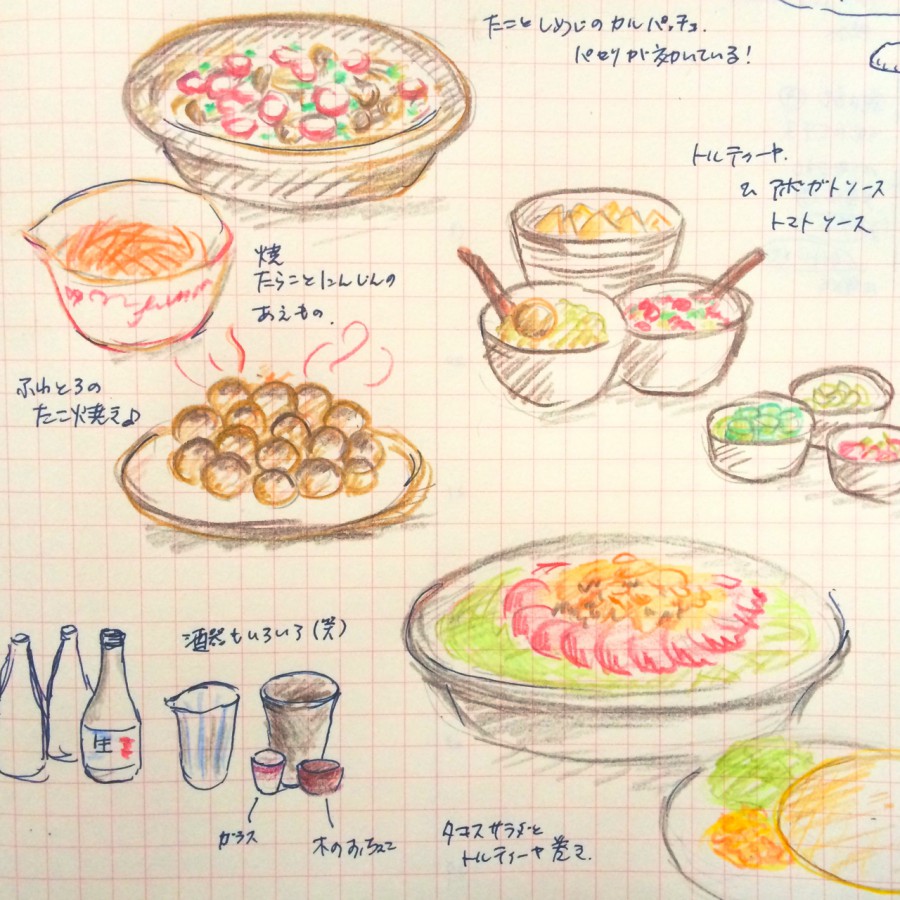 たことしめじのカルパッチョ.
パセリが効いている!
トルティーヤ.
アボガドソース
トマトソース
焼
たらことにんじんの
あえもの.
ふわとろの
たこ焼き♪
酒器もいろいろ(笑)
生
ガラス
木のおちょこ
タコスサラダと
トルティーヤ巻き.